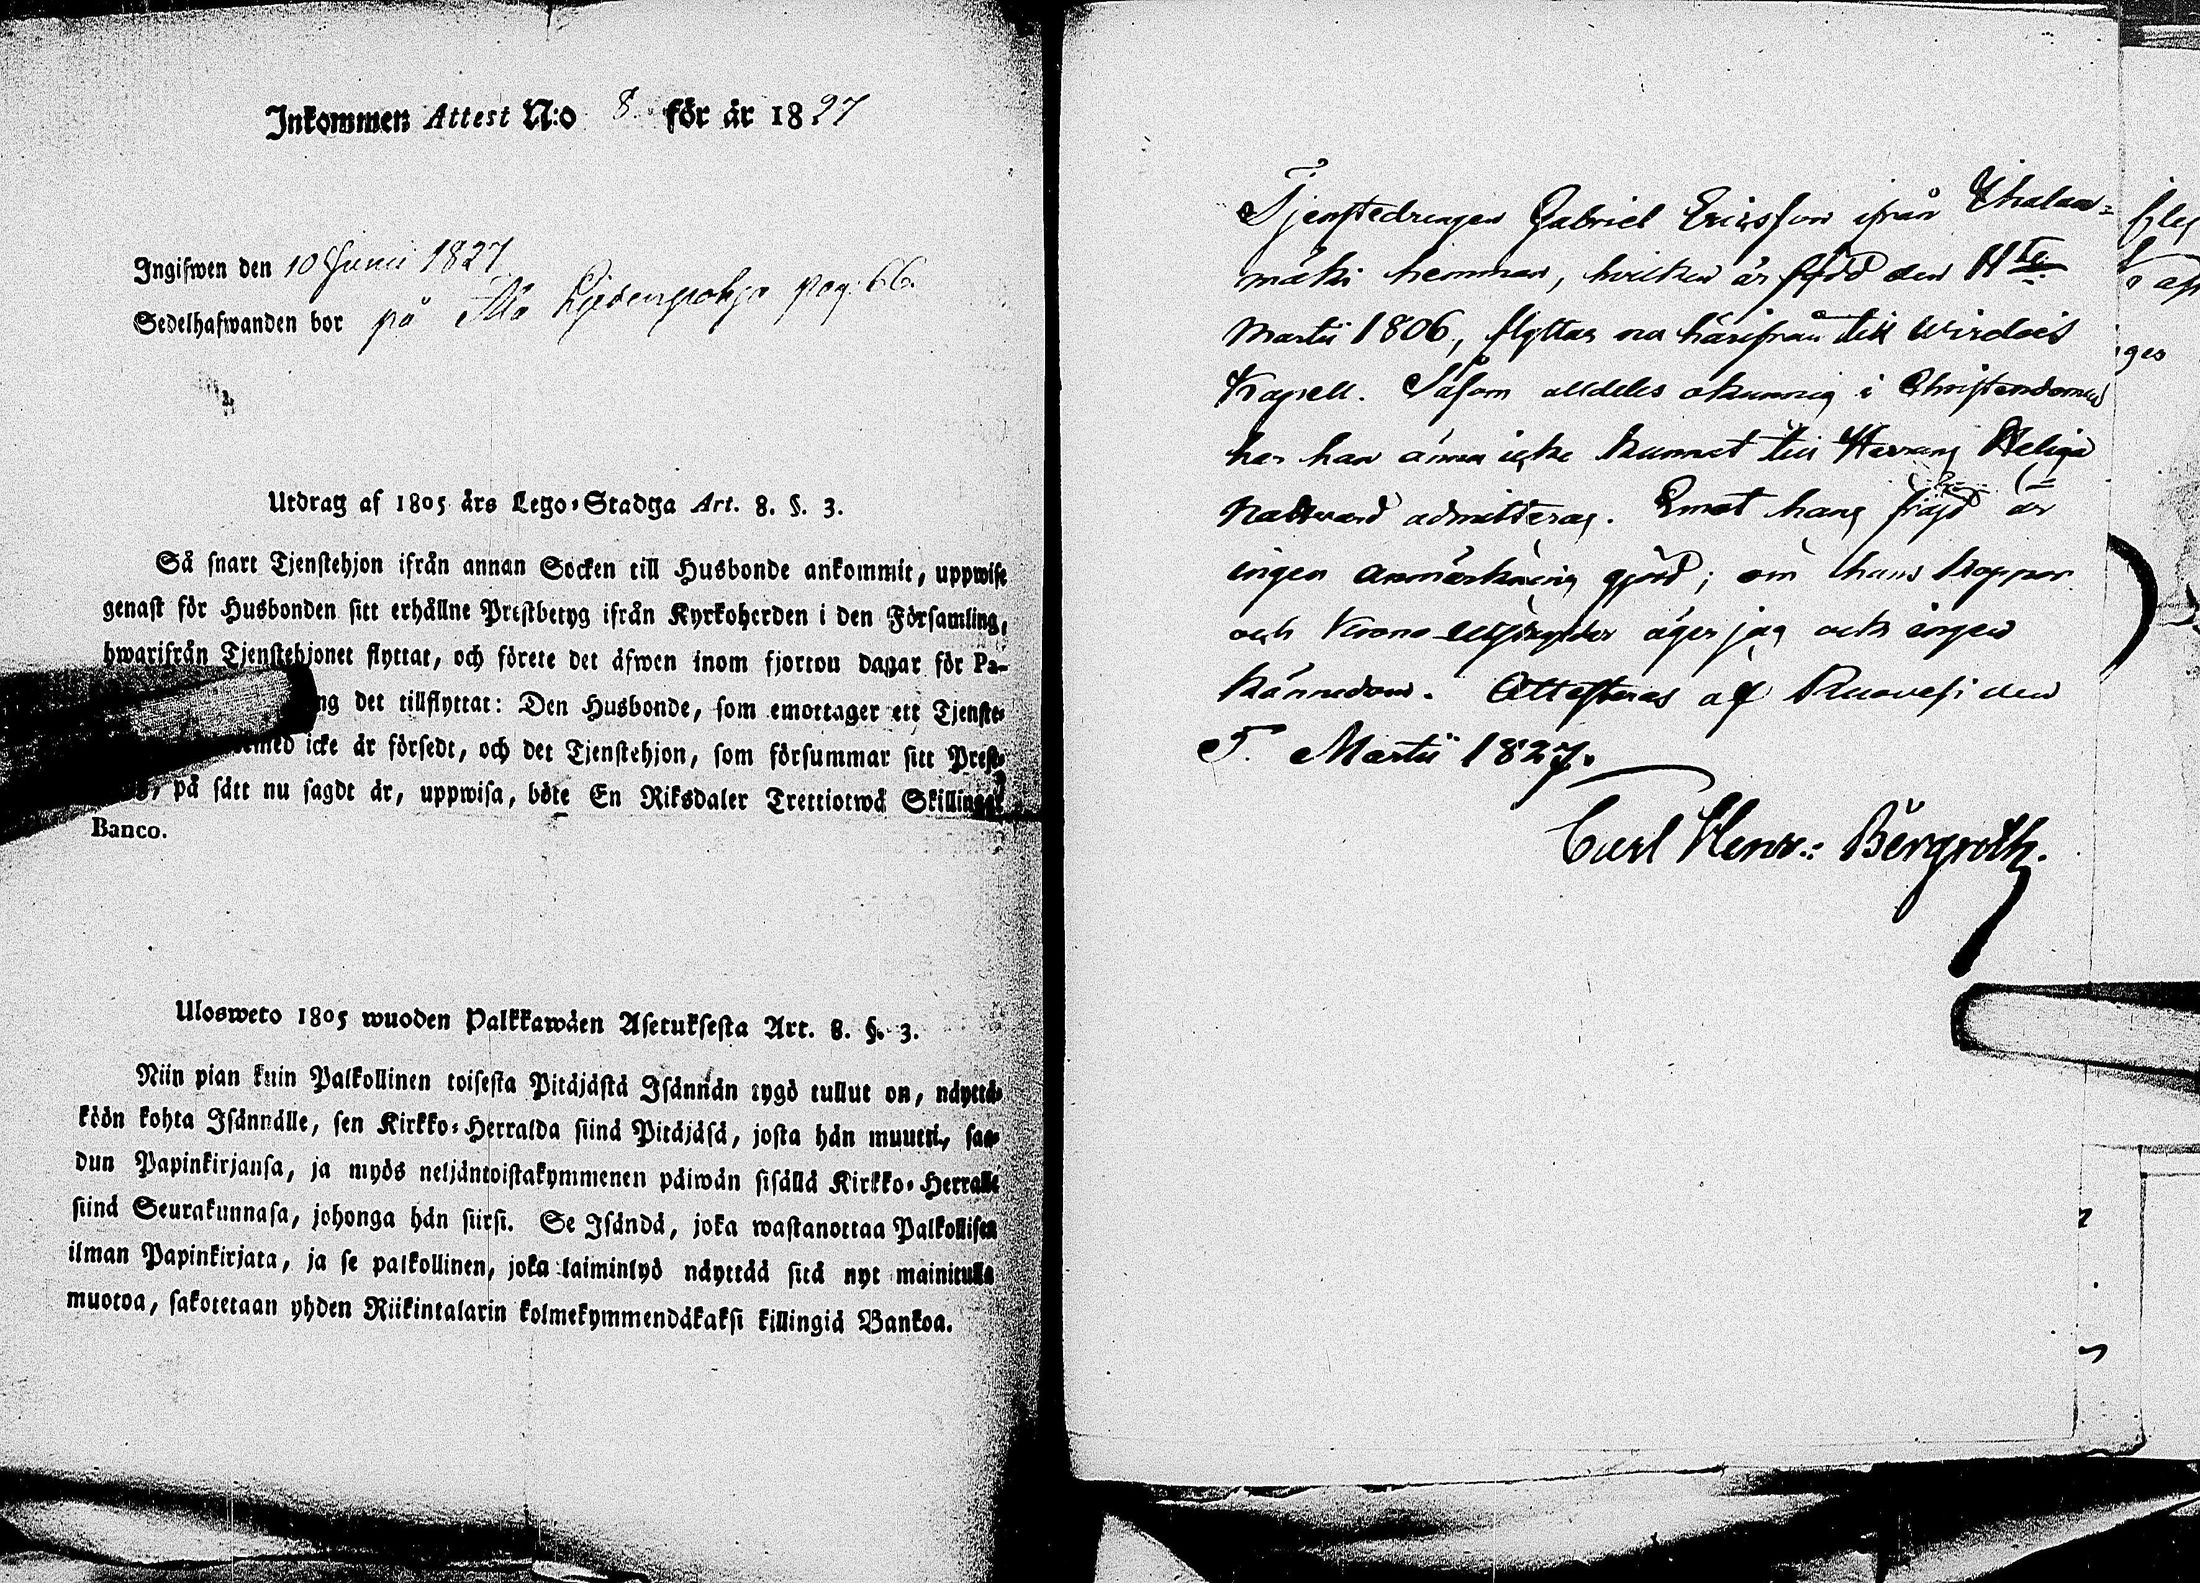 Inkommen Attest N:o 8 för år 1827
Ingifwen den 10 Junii 1827
Sedelhafwanden bor på Ala pag: 66.
Utdrag af 1805 års Lego-Stadga Art. 8. §. 3.
Så snart Tjenstehjon ifrån annan Socken till Husbonde ankommit, uppwise
genast för Husbonden sitt erhållne Prestbetyg ifrån Kyrkoherden i den Församling,
hwarifrån Tjenstehjonet flyttat, och förete det äfwen inom fjorton dagar för Pa-
ng det tillflyttat: Den Husbonde, som emottager ett Tjenste-
med icke är försedt, och det Tjenstehjon, som försummar sitt Prest-
på sätt nu sagdt är, uppwisa, böte En Riksdaler Trettiotwå Skillingar
Banco.
Ulosweto 1805 wuoden Palkkawäen Asetuksesta Art. 8. §. 3.
Niin pian kuin Palkollinen toisesta Pitäjästä Isännän tygö tullut on, näyttä-
köön kohta Isännälle, sen Kirkko-Herralda siinä Pitäjäsä, josta hän muutti, saa-
dun Papinkirjansa, ja myös neljäntoistakymmenen päiwän sisällä Kirkko-Herralle
siinä Seurakunnasa, johonga hän siirsi. Se Isändä, joka wastanottaa Palkollisen
ilman Papinkirjata, ja se palkollinen, joka laiminlyö näyttää sitä nyt mainitulla
muotoa, sakotetaan yhden Riikintalarin kolmekymmendäkaksi killingiä Bankoa.
Tjenstedrengen Gabriel Ericsson ifrån Ihalan=
mäki hemman, hvilken är född den 11te
Martii 1806, flyttar nu härifrån till Wirdois
Kapell. Såsom alldeles okunnig i Christendomen
har han ännu icke kunnat till Herrans Heliga
Nattvard admitteras. Emot hans frägd är
ingen anmärkning gjord; om hans koppor
och Krono utskylder äger jag ock ingen
kännedom. Attesteras af Ruovesi den
5. Martii 1827.
Carl Henr.: Bergroth.